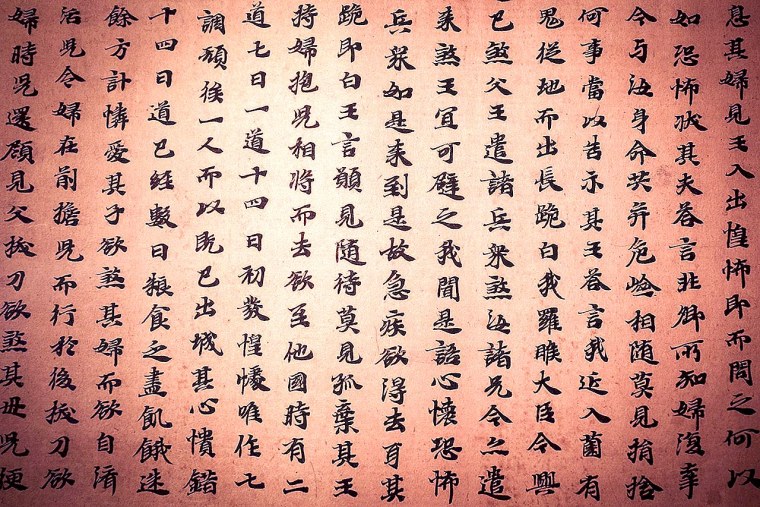 息其婦見王入出惶怖即而問之何以
如恐怖狀其夫答言非卿所知婦復牽
今与汝身命共并危嶮相随莫見捐捨
何事當以苦示其王答言我近入薗有
鬼從地而出長跪白我羅睺大臣今興
已煞父王遣諸兵衆煞汝諸兄今亦遣
来煞王宜可避之我聞是語心懷恐怖
兵衆如是来到是故急疾欲得去耳其
跪即白王言願見随侍莫見孤棄其王
持婦抱兒相將而去欲至他國時有二
道七日一道十四日初發惶懅唯作七
調頓俟一人而以既已出城其心憒錯
十四日道已經數日粮食乏盡飢餓迷
餘方計憐愛其子欲煞其婦而欲自濟
活兒令婦在前擔兒而行於後拔刀欲
婦時兒還顧見父拔刀欲煞其母兒便